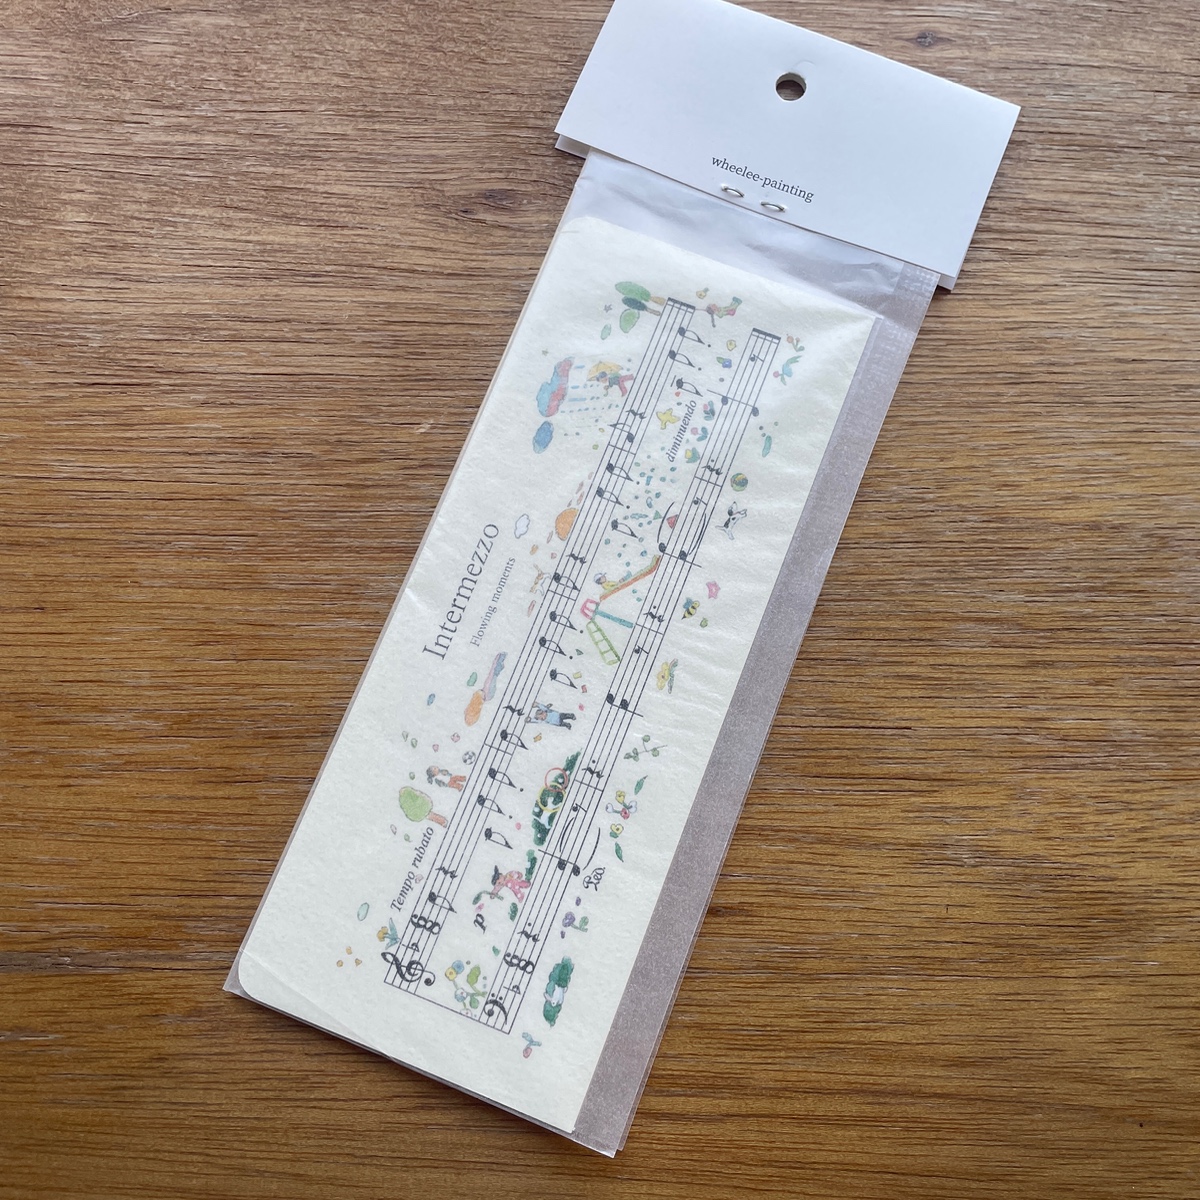 wheelee-painting
Intermezzo
Flowing moments
Tempo rubato
6 8
p
diminuendo
6 8
Ped